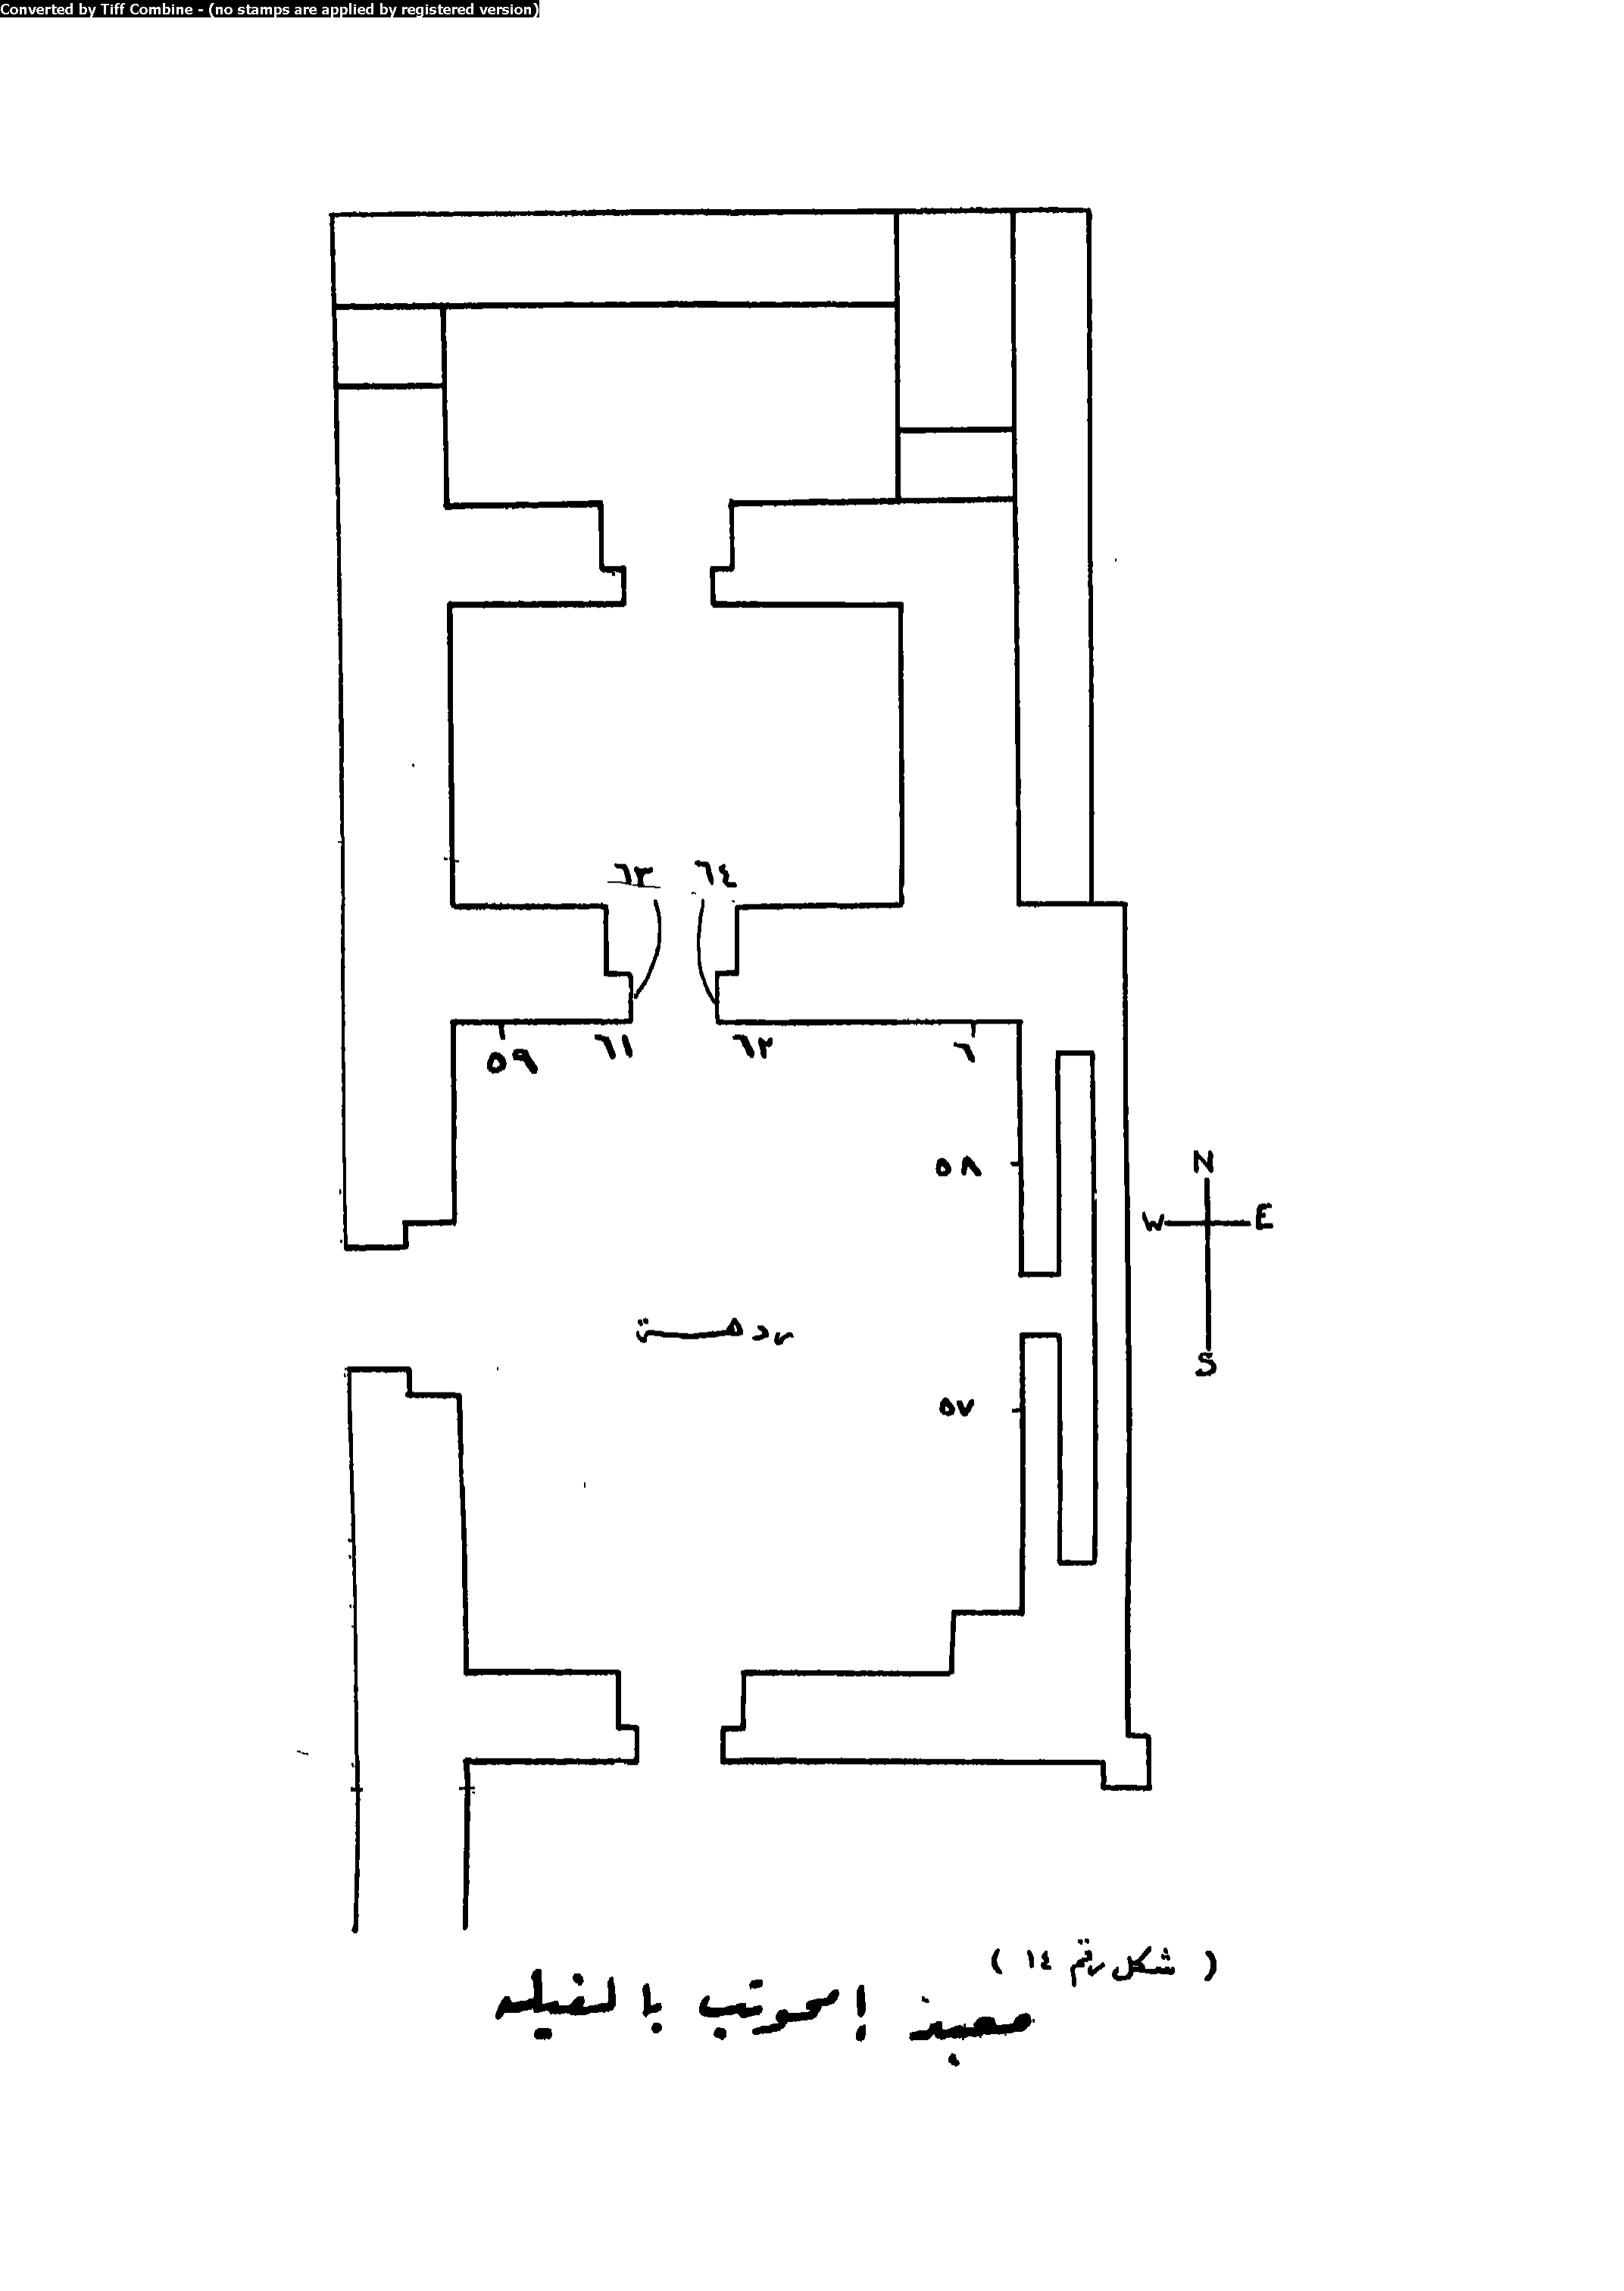 Converted by Tiff Combine - (no stamps are applied by registered version)
٦٣ ٦٤
٥٩ ٦١ ٦٢ ٦
٥٨
N
W E
S
ردهـة
٥٧
( شكل رقم ١٤ )
معبد إمحوتب بالفيله